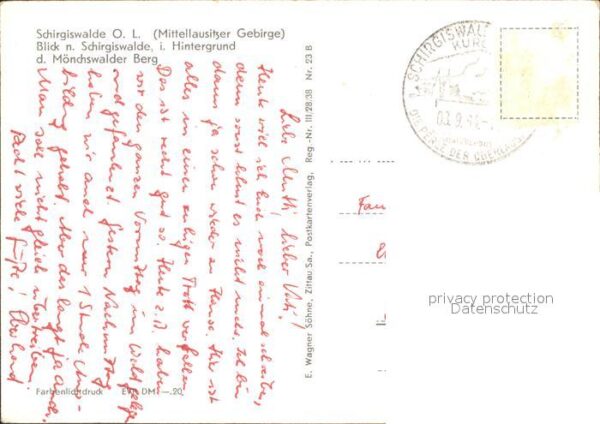 Schirgiswalde O. L. (Mittellausitzer Gebirge)
Blick n. Schirgiswalde, i. Hintergrund
d. Mönchswalder Berg
Liebe Mutti! Lieber Vati!
Heute will ich Euch noch einmal schreiben,
denn sonst lohnt es nicht mehr. Ich bin
dann ja schon wieder zu Hause. Hier ist
alles in einen ruhigen Trott verfallen.
Das ist recht gut so. Heute z.B. haben
wir den ganzen Vormittag im Wald
und gefaulenzt. Gestern Nachmittag
haben wir auch nur 1 Stunde
bildung gehabt. Aber das langt ja auch.
Man soll nicht gleich übertreiben.
Recht viele Grüße! Eberhard
Farbenlichtdruck EVP DM —.20
E. Wagner Söhne, Zittau Sa., Postkartenverlag, Reg-Nr. III.28.38 Nr. 23 B
SCHIRGISWALDE
KURORT
03.9.
DIE PERLE DER OBERLAUSITZ
Fam
privacy protection
Datenschutz